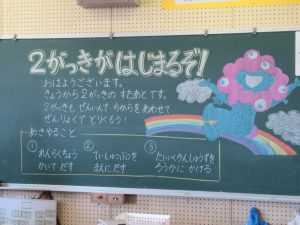 2がっきがはじまるぞ!
おはようございます。
きょうから2がっきの すたあとです。
2がっきも ぜんいんで ちからをあわせて
ぜんりょくで とりくもう!
あさやること
① れんらくちょう かいて だす
② ていしゅつぶつを まえに だす
③ たいいくかんしゅうずを ろうかに かける